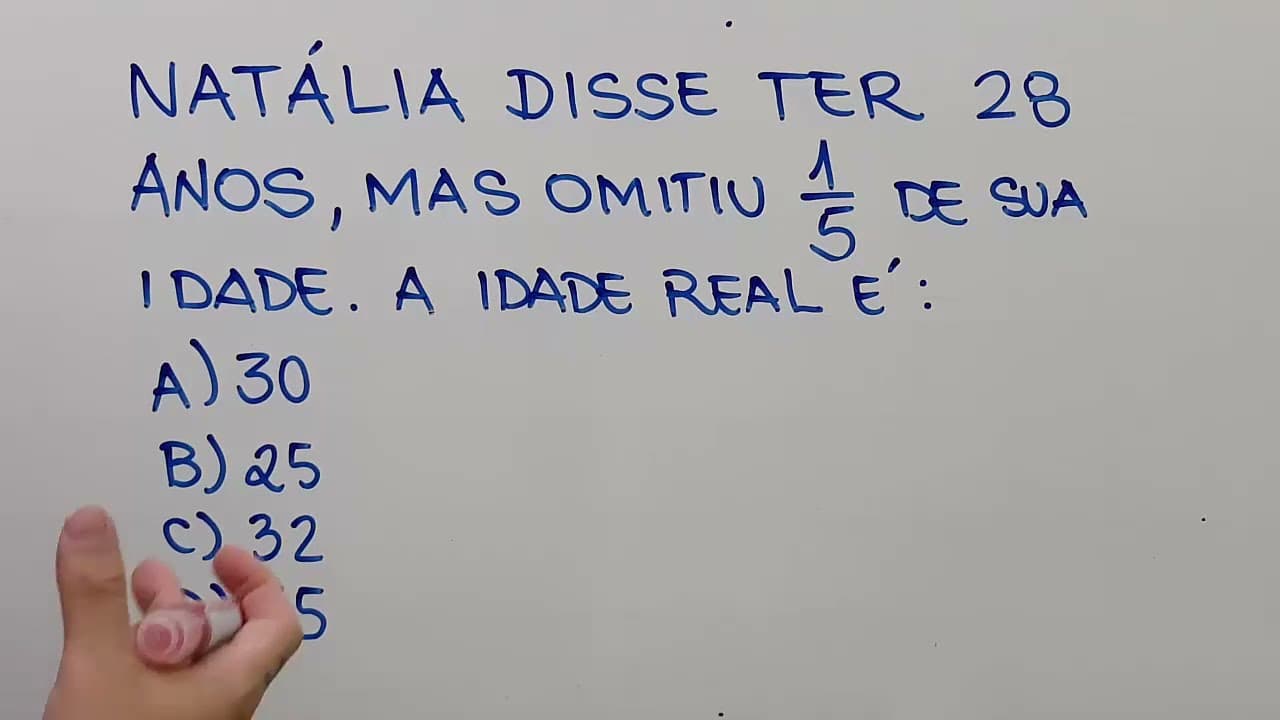 NATÁLIA DISSE TER 28
ANOS, MAS OMITIU 1/5 DE SUA
IDADE. A IDADE REAL É:
A) 30
B) 25
C) 32